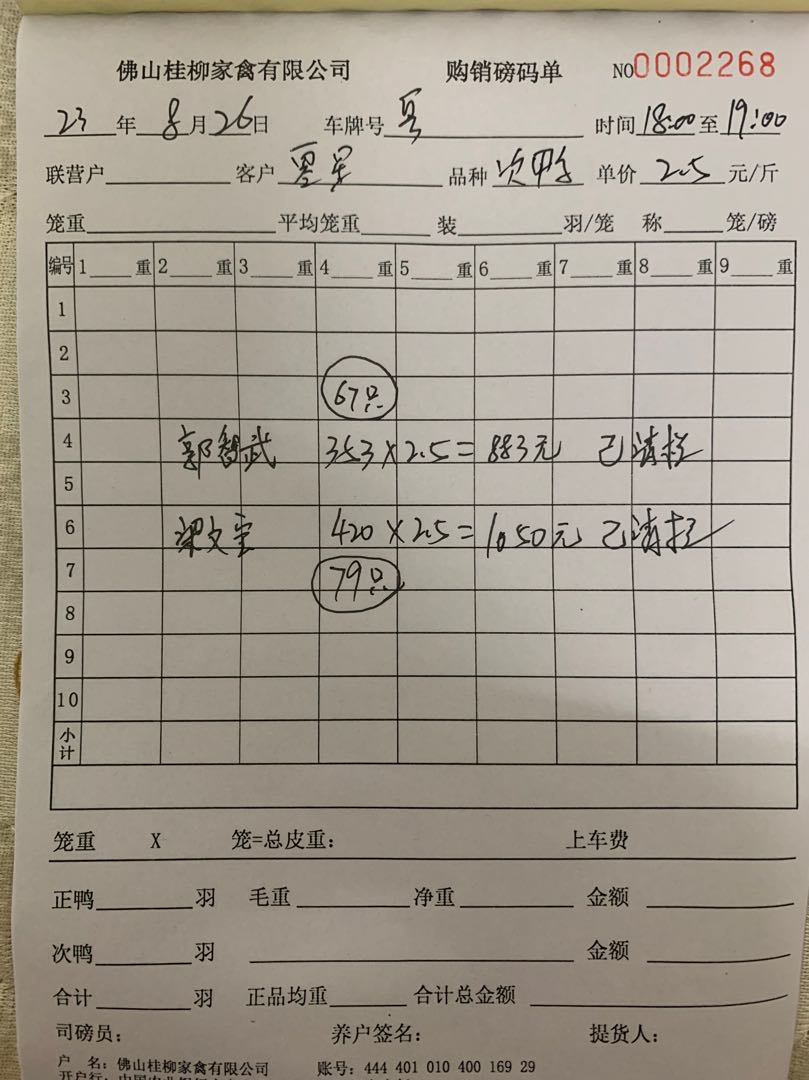 佛山桂柳家禽有限公司 购销磅码单 NO0002268
23年8月26日 车牌号 时间18:00至19:00
联营户 客户 品种 次鸭 单价 2.5 元/斤
笼重 平均笼重 装 羽/笼 称 笼/磅
编号 1 重 2 重 3 重 4 重 5 重 6 重 7 重 8 重 9 重
1
2
3 67只
4 郭智武 353×2.5=883元 已清栏
5
6 梁文 420×2.5=1050元 已清栏
7 79只
8
9
10
小计
笼重 X 笼=总皮重: 上车费
正鸭 羽 毛重 净重 金额
次鸭 羽 金额
合计 羽 正品均重 合计总金额
司磅员: 养户签名: 提货人:
户 名:佛山桂柳家禽有限公司 账号:444 401 010 400 169 29